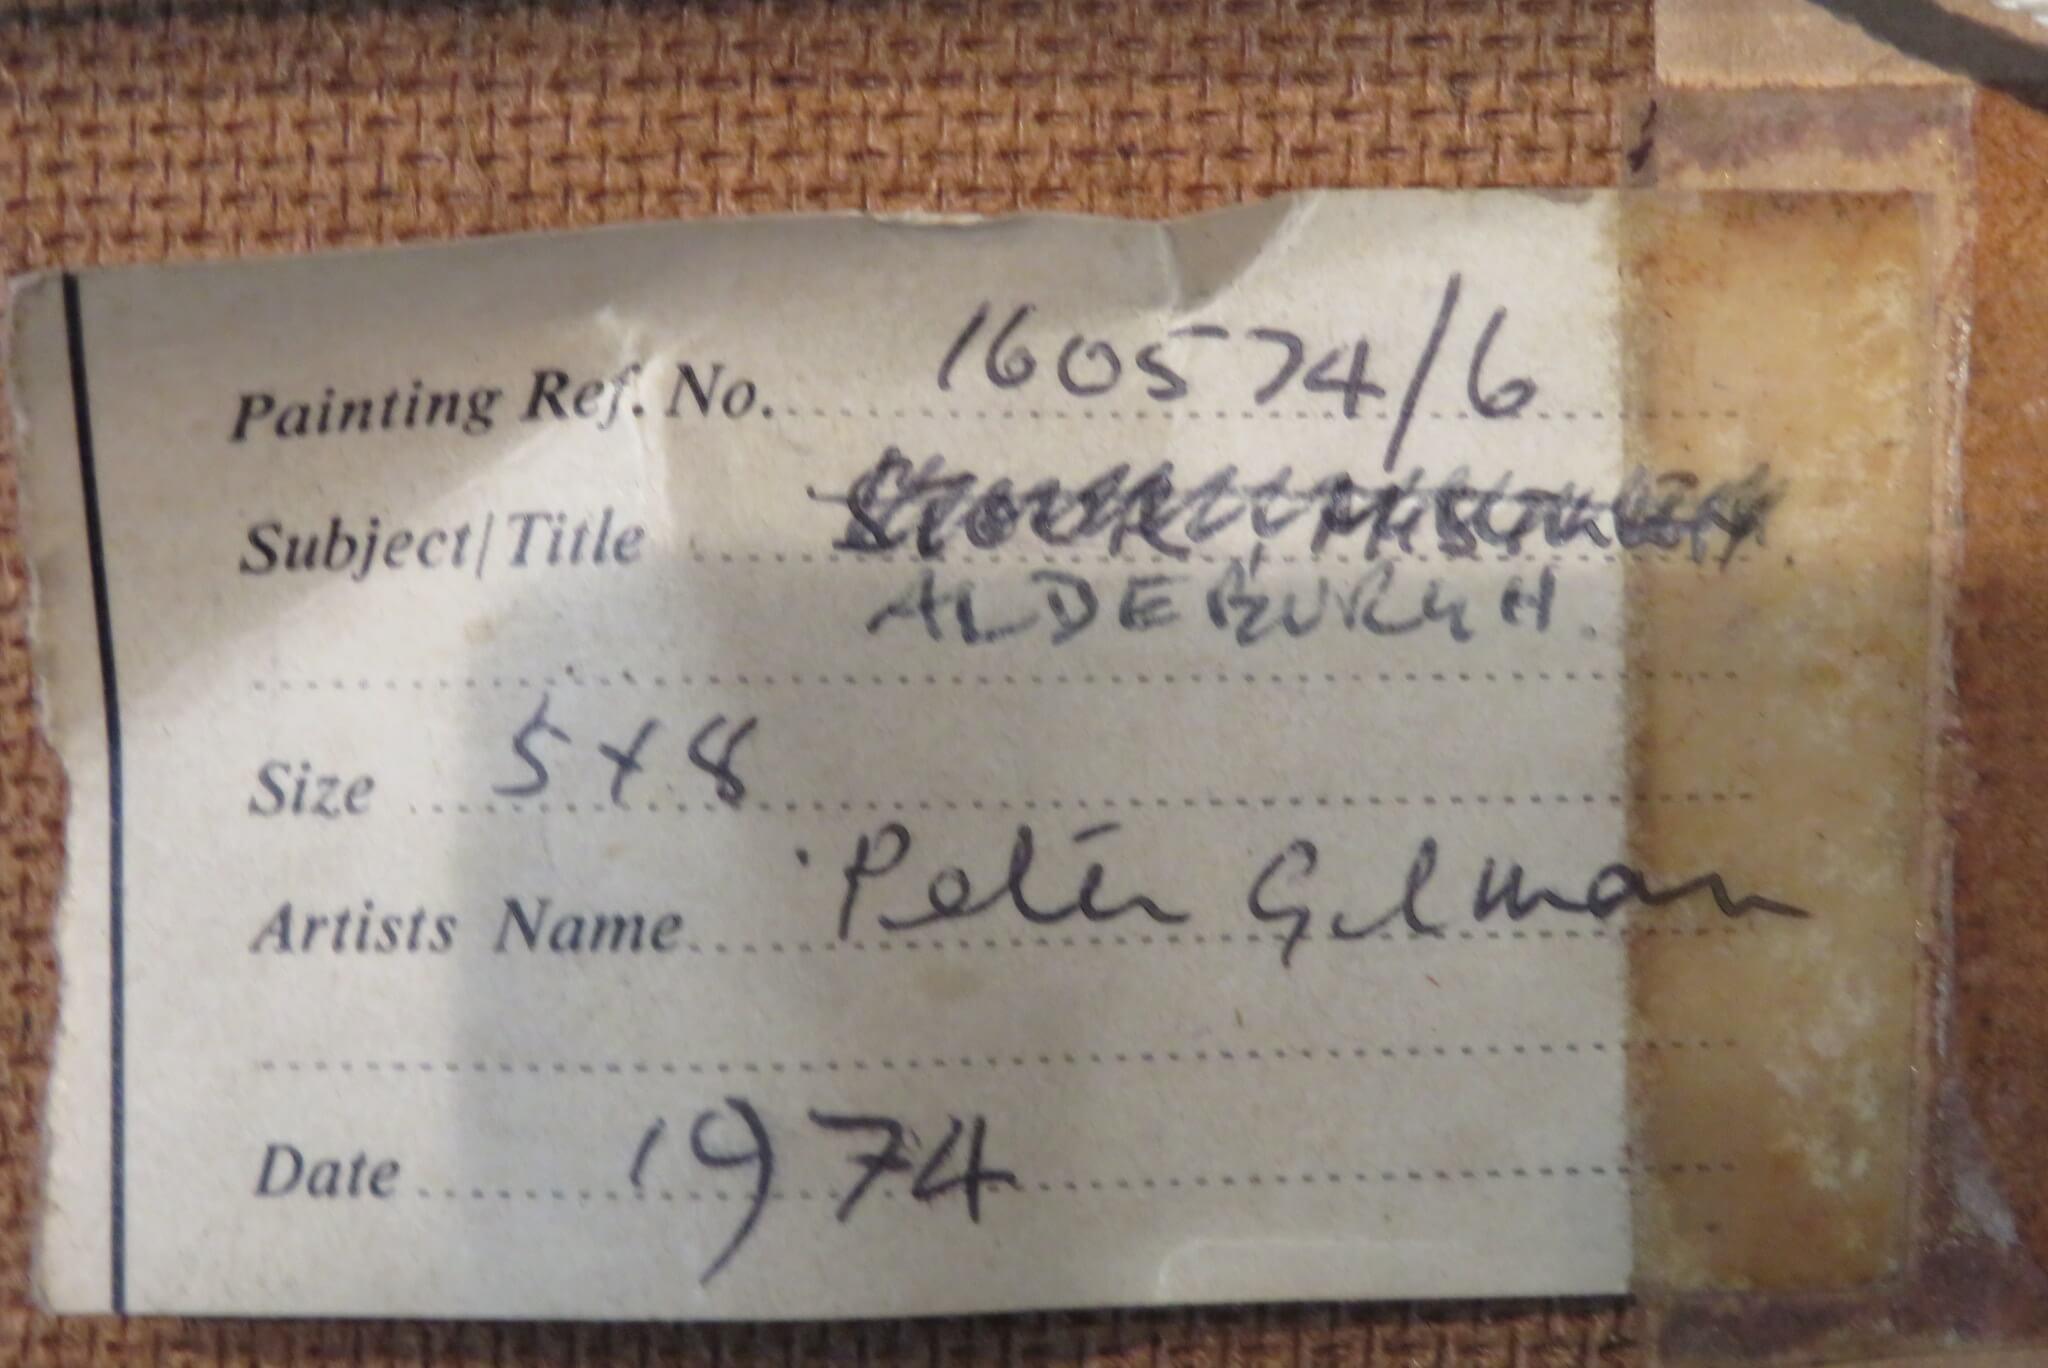 Painting Ref. No. 160574/6
Subject/Title
ALDEBURGH.
Size 5 x 8
Artists Name Peter Gelman
Date 1974